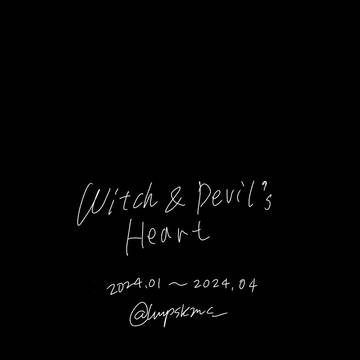 Witch & Devil's
Heart
2024.01 ~ 2024.04